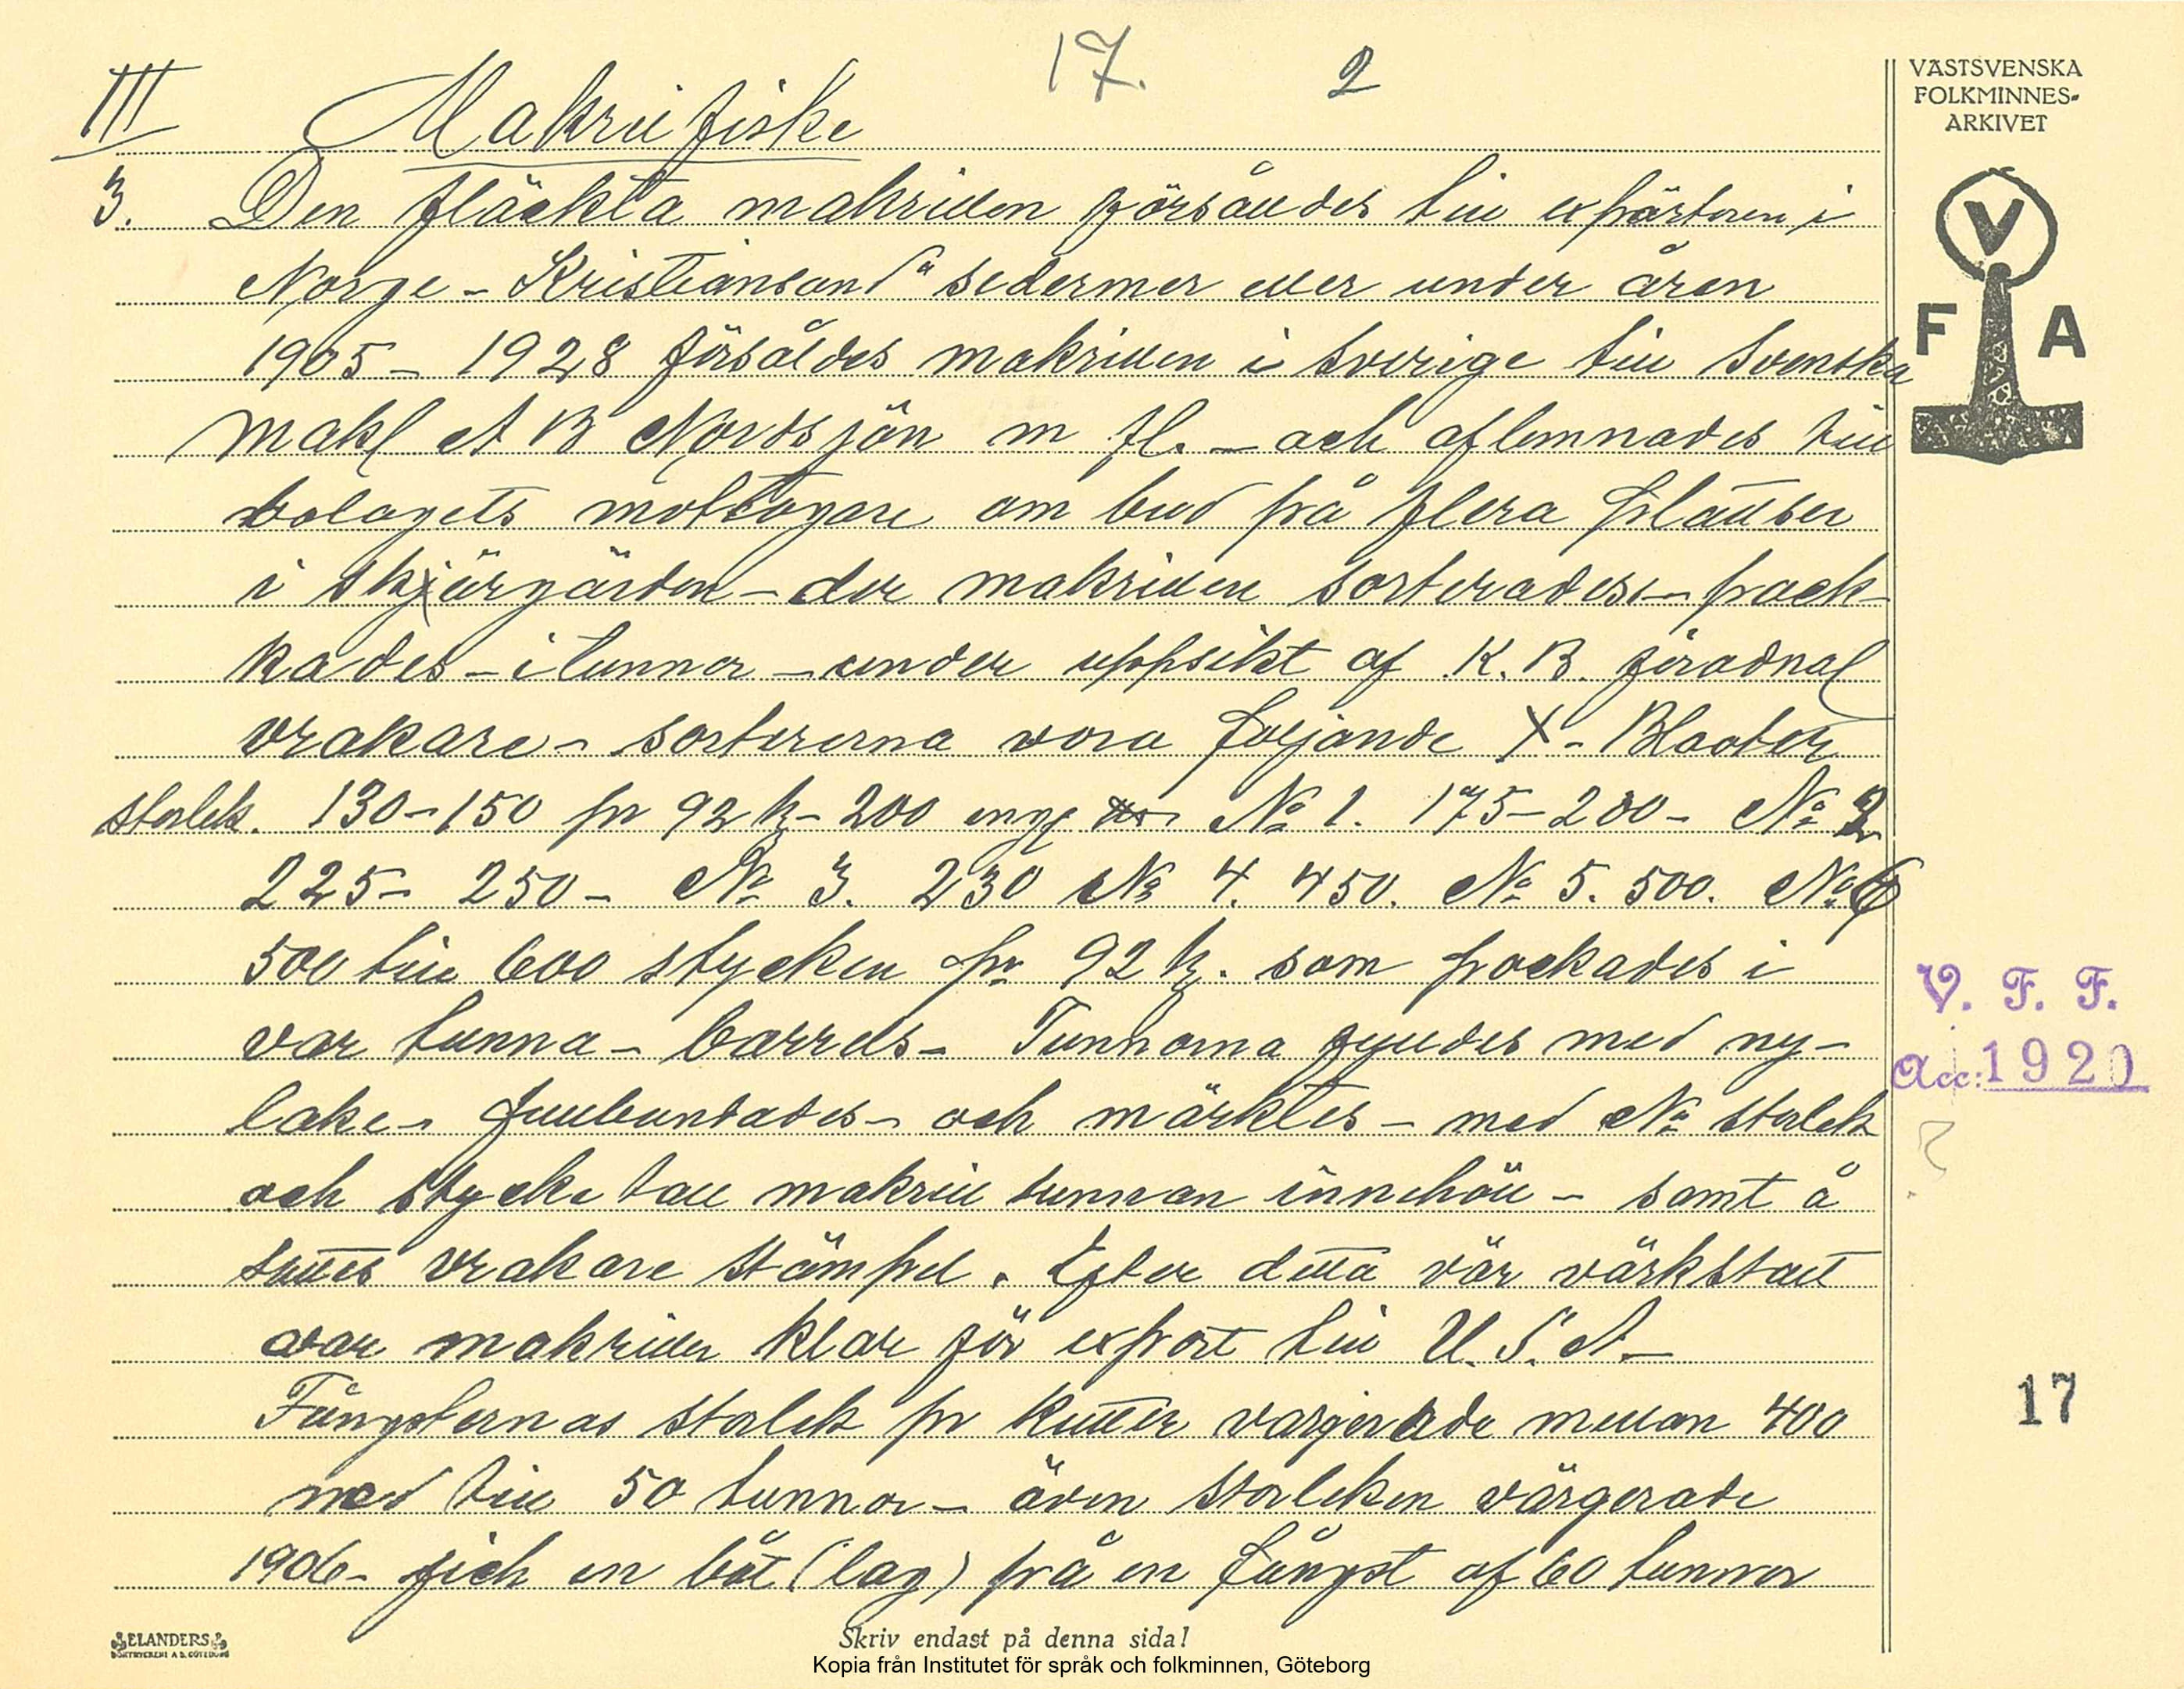 17. 2
III Makrillfiske
3. Den fläckta makrillen försändes till expörtören i
Norge - Kristiansand" sedermer eller under åren
1905 - 1928 försåldes makrillen i Sverige till Svenska
Makl A B Nordsjön m fl. - och aflemnades till
bolagets mottagare om bud på flera plattser
i skjärgården - der makrillen sorterades - pack-
kades - i tunnor - under uppsikt af K. B. förodnal
vrakare - sorterna vora följande X - Bloater
storlek. 130-150 pr 92 k - 200 eng No 1. 175-200 - No 2
225- 250 - No 3. 230 No 4. 450. No 5. 500. No 6
500 till 600 stycken pr 92 k. som packades i
var tunna - barrels - Tunnorna fylldes med ny-
lake - fullbundades - och märktes - med No storlek
och stycke tall makrill tunnan innehöll - samt å
sattes vrakare stämpel. Efter detta vär värkstält
var makrillen klar för export till U. S. A. -
Fångsternas storlek pr kutter vargerade mellan 400
ned till 50 tunnor - även storleken värgerade
1906 - fich en båt (lag) på en fångst af 60 tunnor
VÄSTSVENSKA
FOLKMINNES-
ARKIVET
V
F A
V. F. F.
Acc: 1920
?
17
ELANDERS
BOKTRYCKERI A.B. GÖTEBORG
Skriv endast på denna sida!
Kopia från Institutet för språk och folkminnen, Göteborg